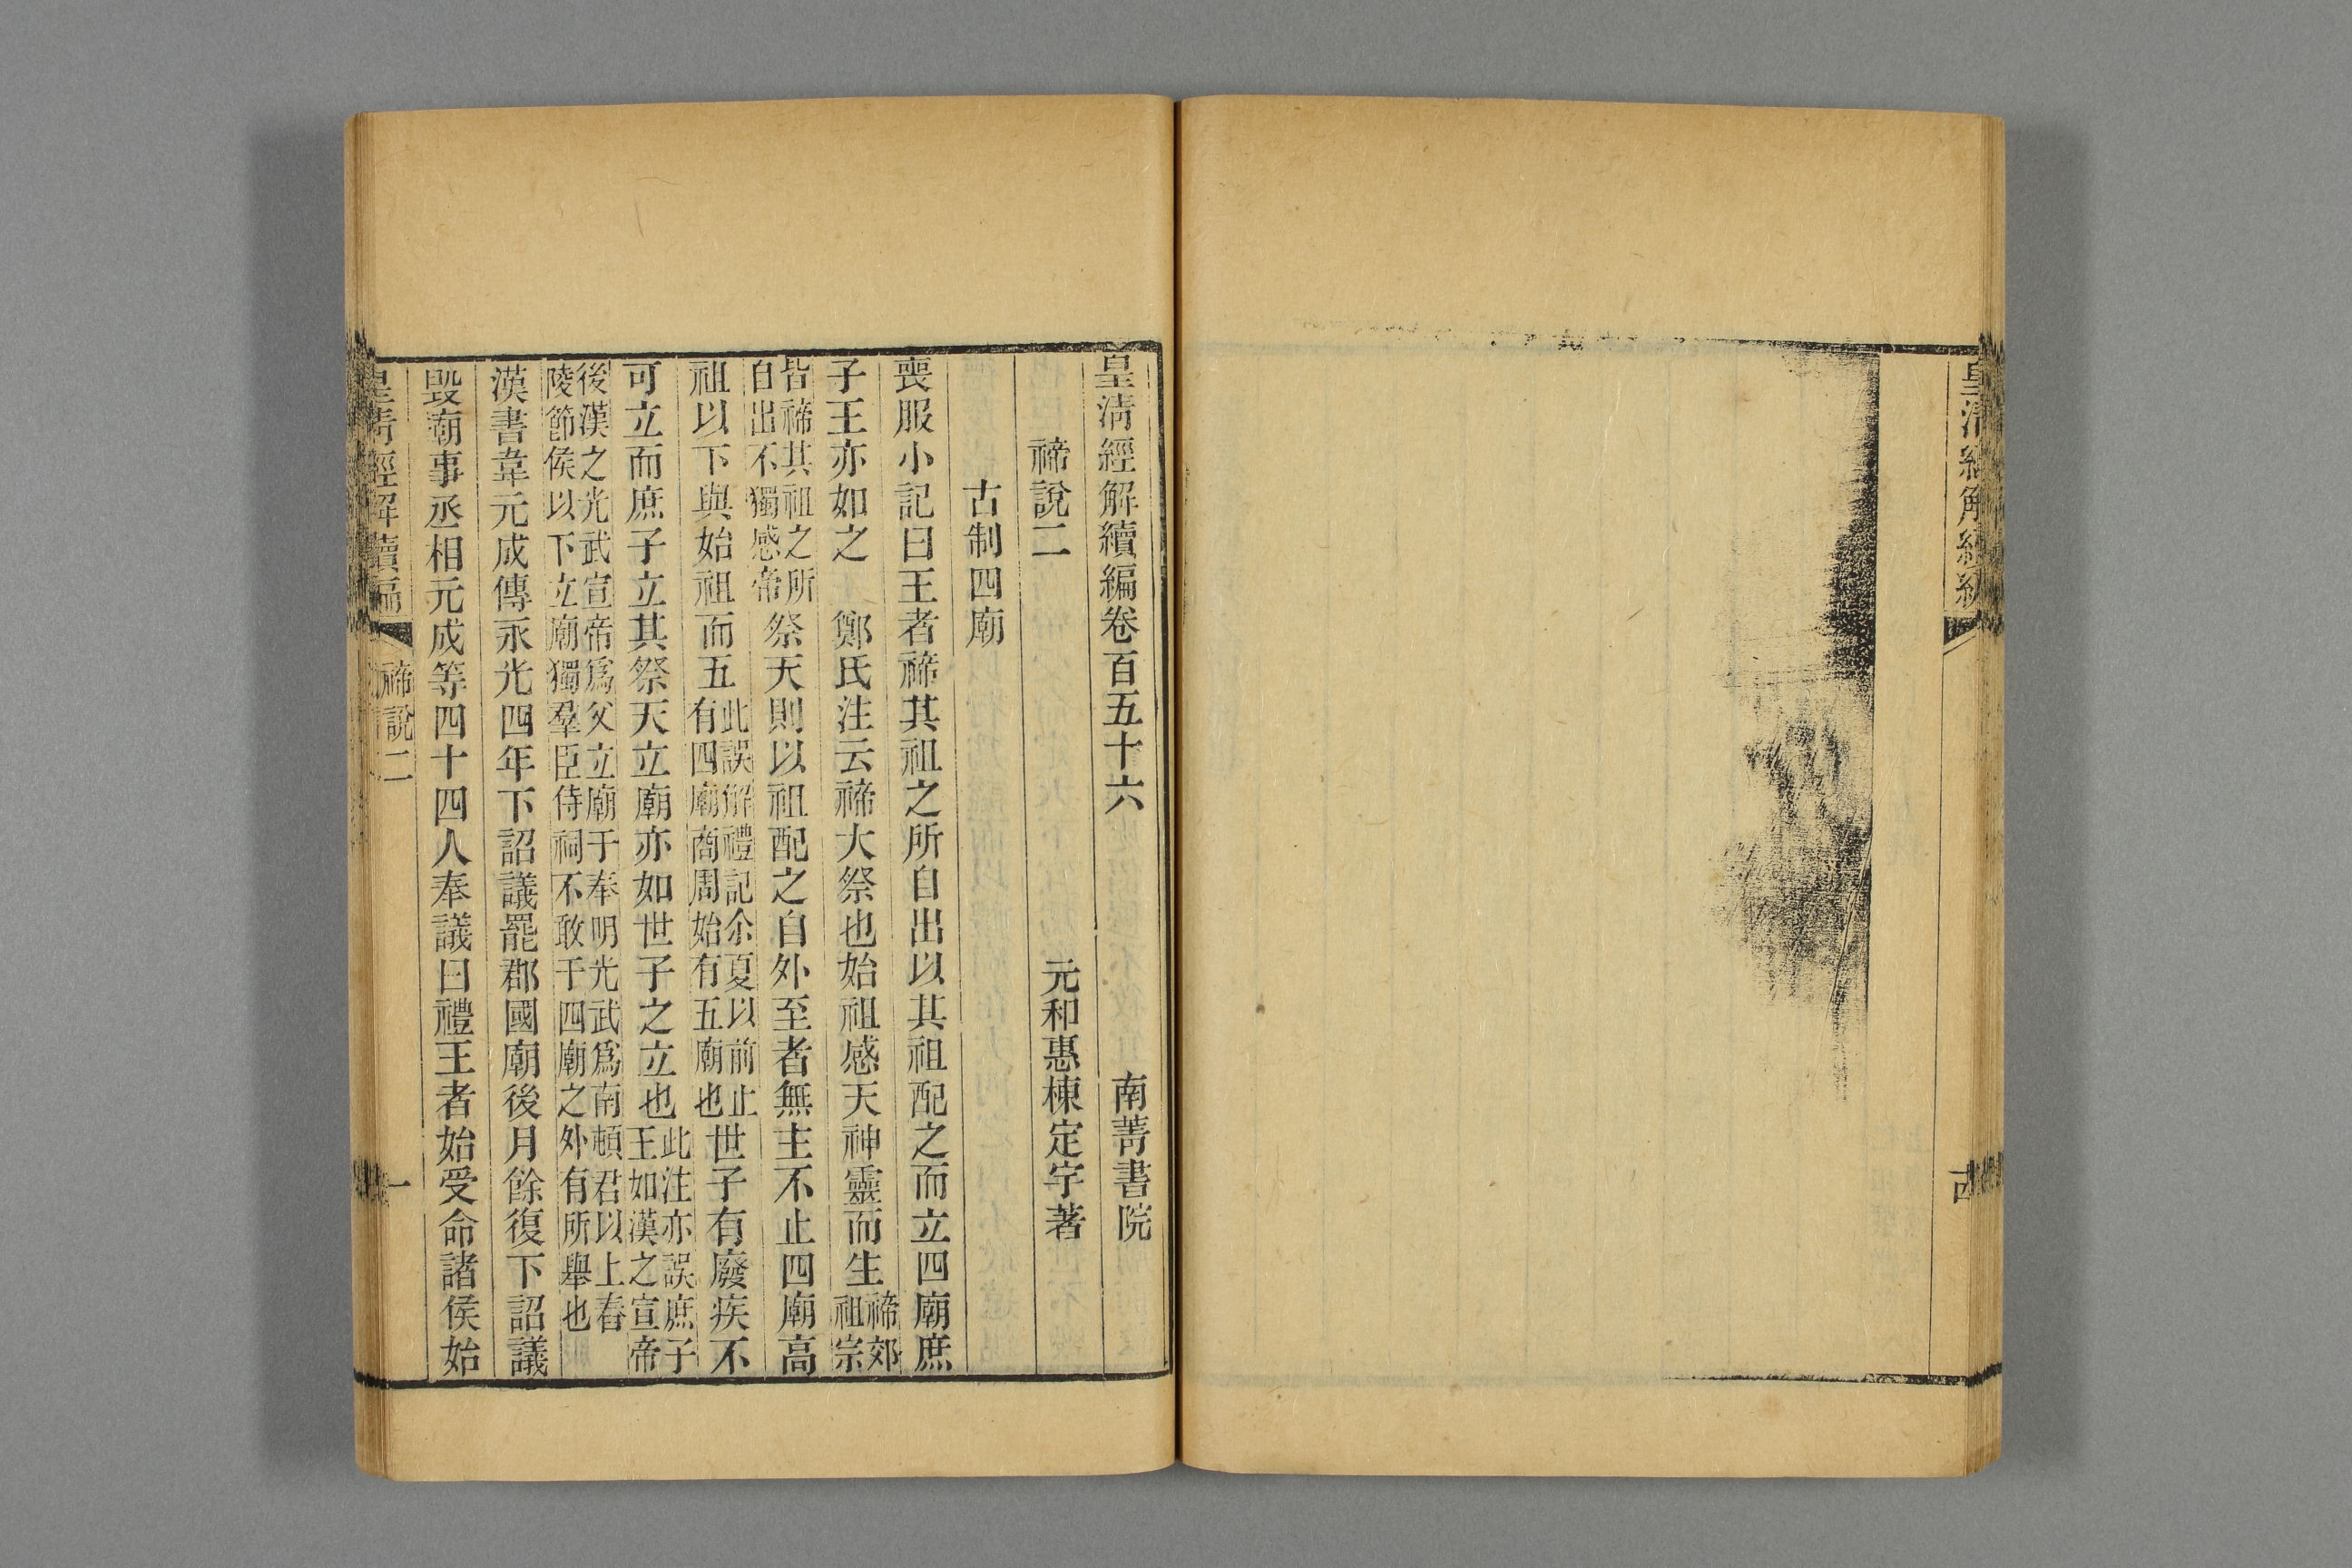 皇清經解續編卷百五十六 南菁書院
禘說二 元和惠棟定宇著
古制四廟
喪服小記曰王者禘其祖之所自出以其祖配之而立四廟庶
子王亦如之 鄭氏注云禘大祭也始祖感天神靈而生禘郊祖宗
皆禘其祖之所自出不獨感帝祭天則以祖配之自外至者無主不止四廟高
祖以下與始祖而五此誤解禮記余夏以前止有四廟商周始有五廟也世子有廢疾不
可立而庶子立其祭天立廟亦如世子之立也此注亦誤庶子王如漢之宣帝
後漢之光武宣帝爲父立廟于奉明光武爲南頓君以上舂陵節侯以下立廟獨羣臣侍祠不敢干四廟之外有所舉也
漢書韋元成傳永光四年下詔議罷郡國廟後月餘復下詔議
毀廟事丞相元成等四十四人奉議曰禮王者始受命諸侯始
皇清經解續編 禘說二 一